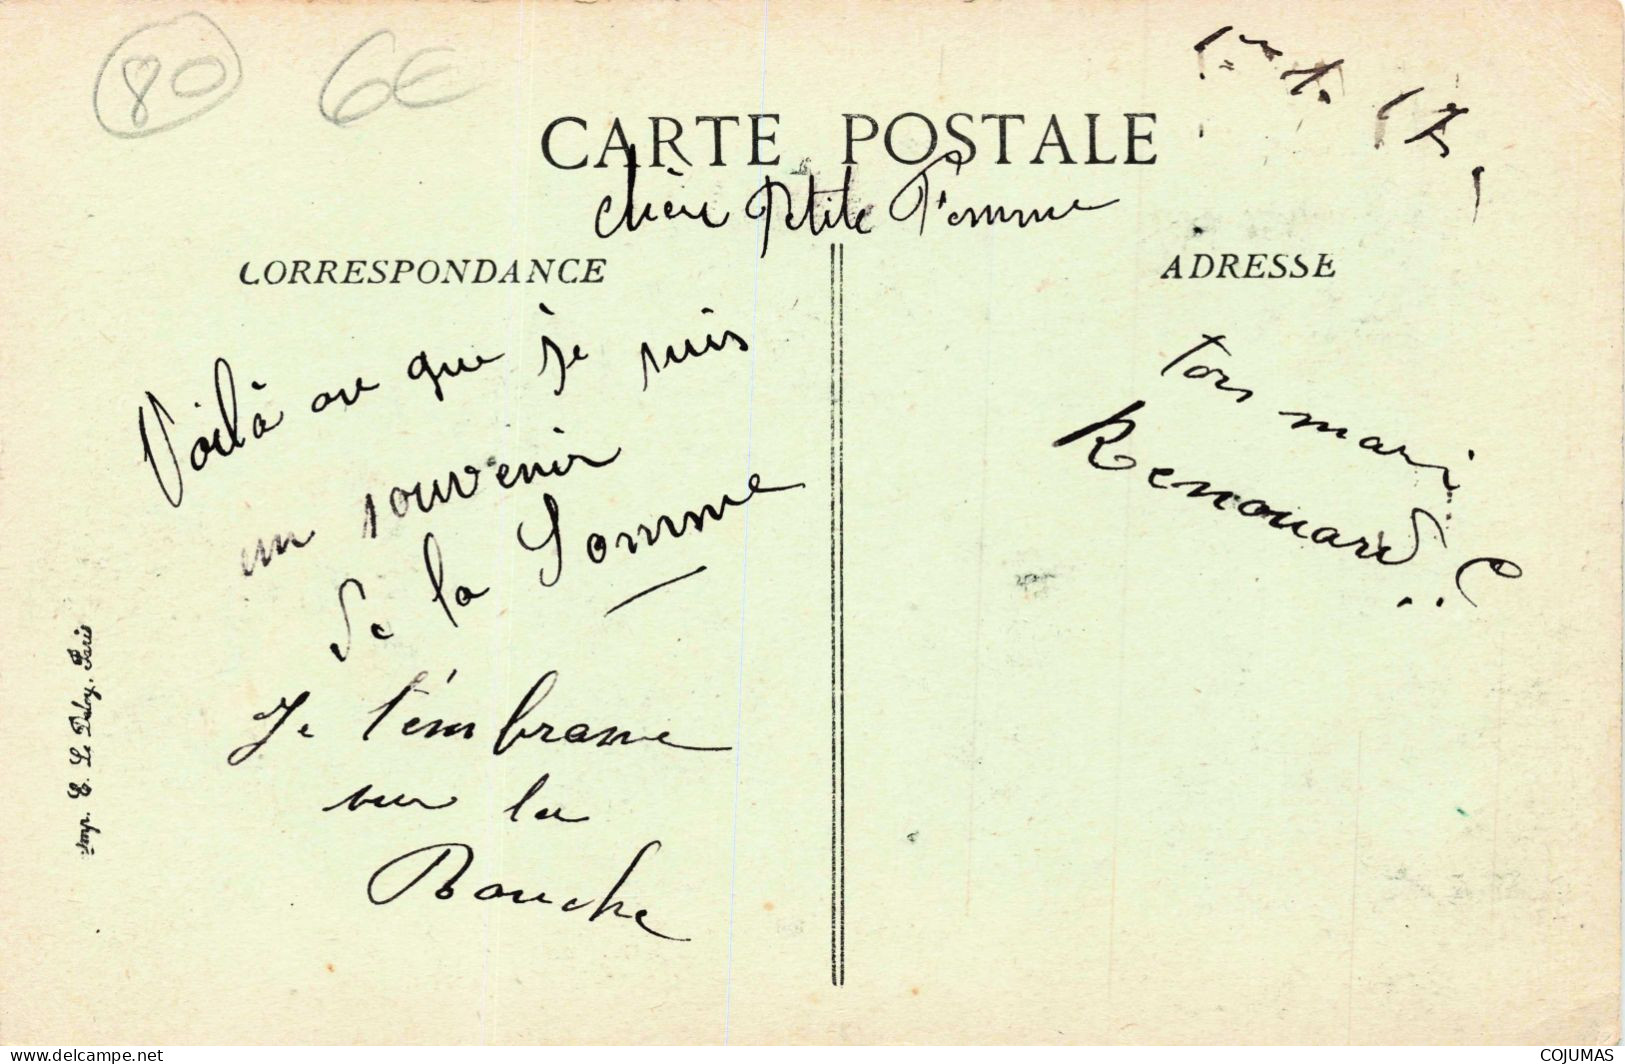 80 6€
1er 1. 17.
CARTE POSTALE
chère Petite Femme
CORRESPONDANCE
ADRESSE
Voilà ou que je suis
un souvenir
de la Somme
Je t'embrasse
sur la
Bouche
ton mari
Renouard C
Imp. E. Le Deley, Paris
COJUMAS